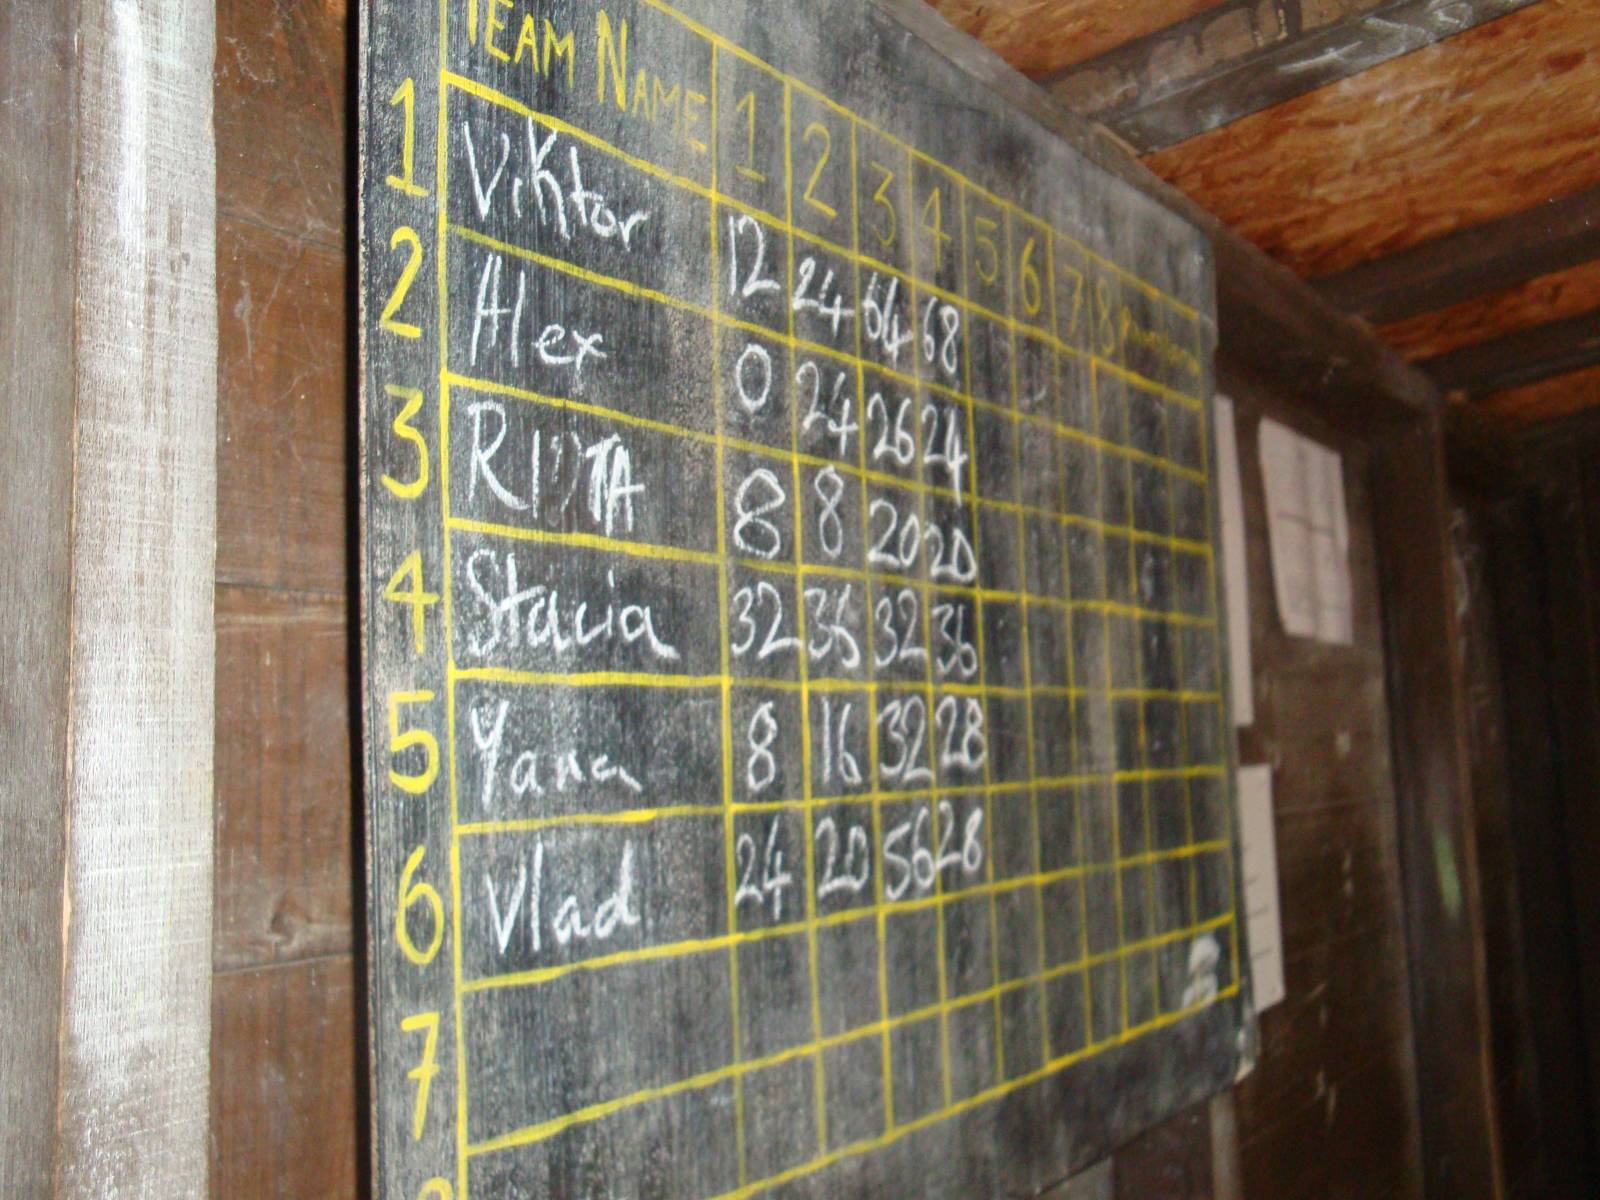 TEAM NAME 1 2 3 4 5 6 7 8
1 Viktor 12 24 64 68
2 Alex 0 24 26 24
3 8 8 20 20
4 Stacia 32 36 32 36
5 Yana 8 16 32 28
6 Vlad 24 20 56 28
7